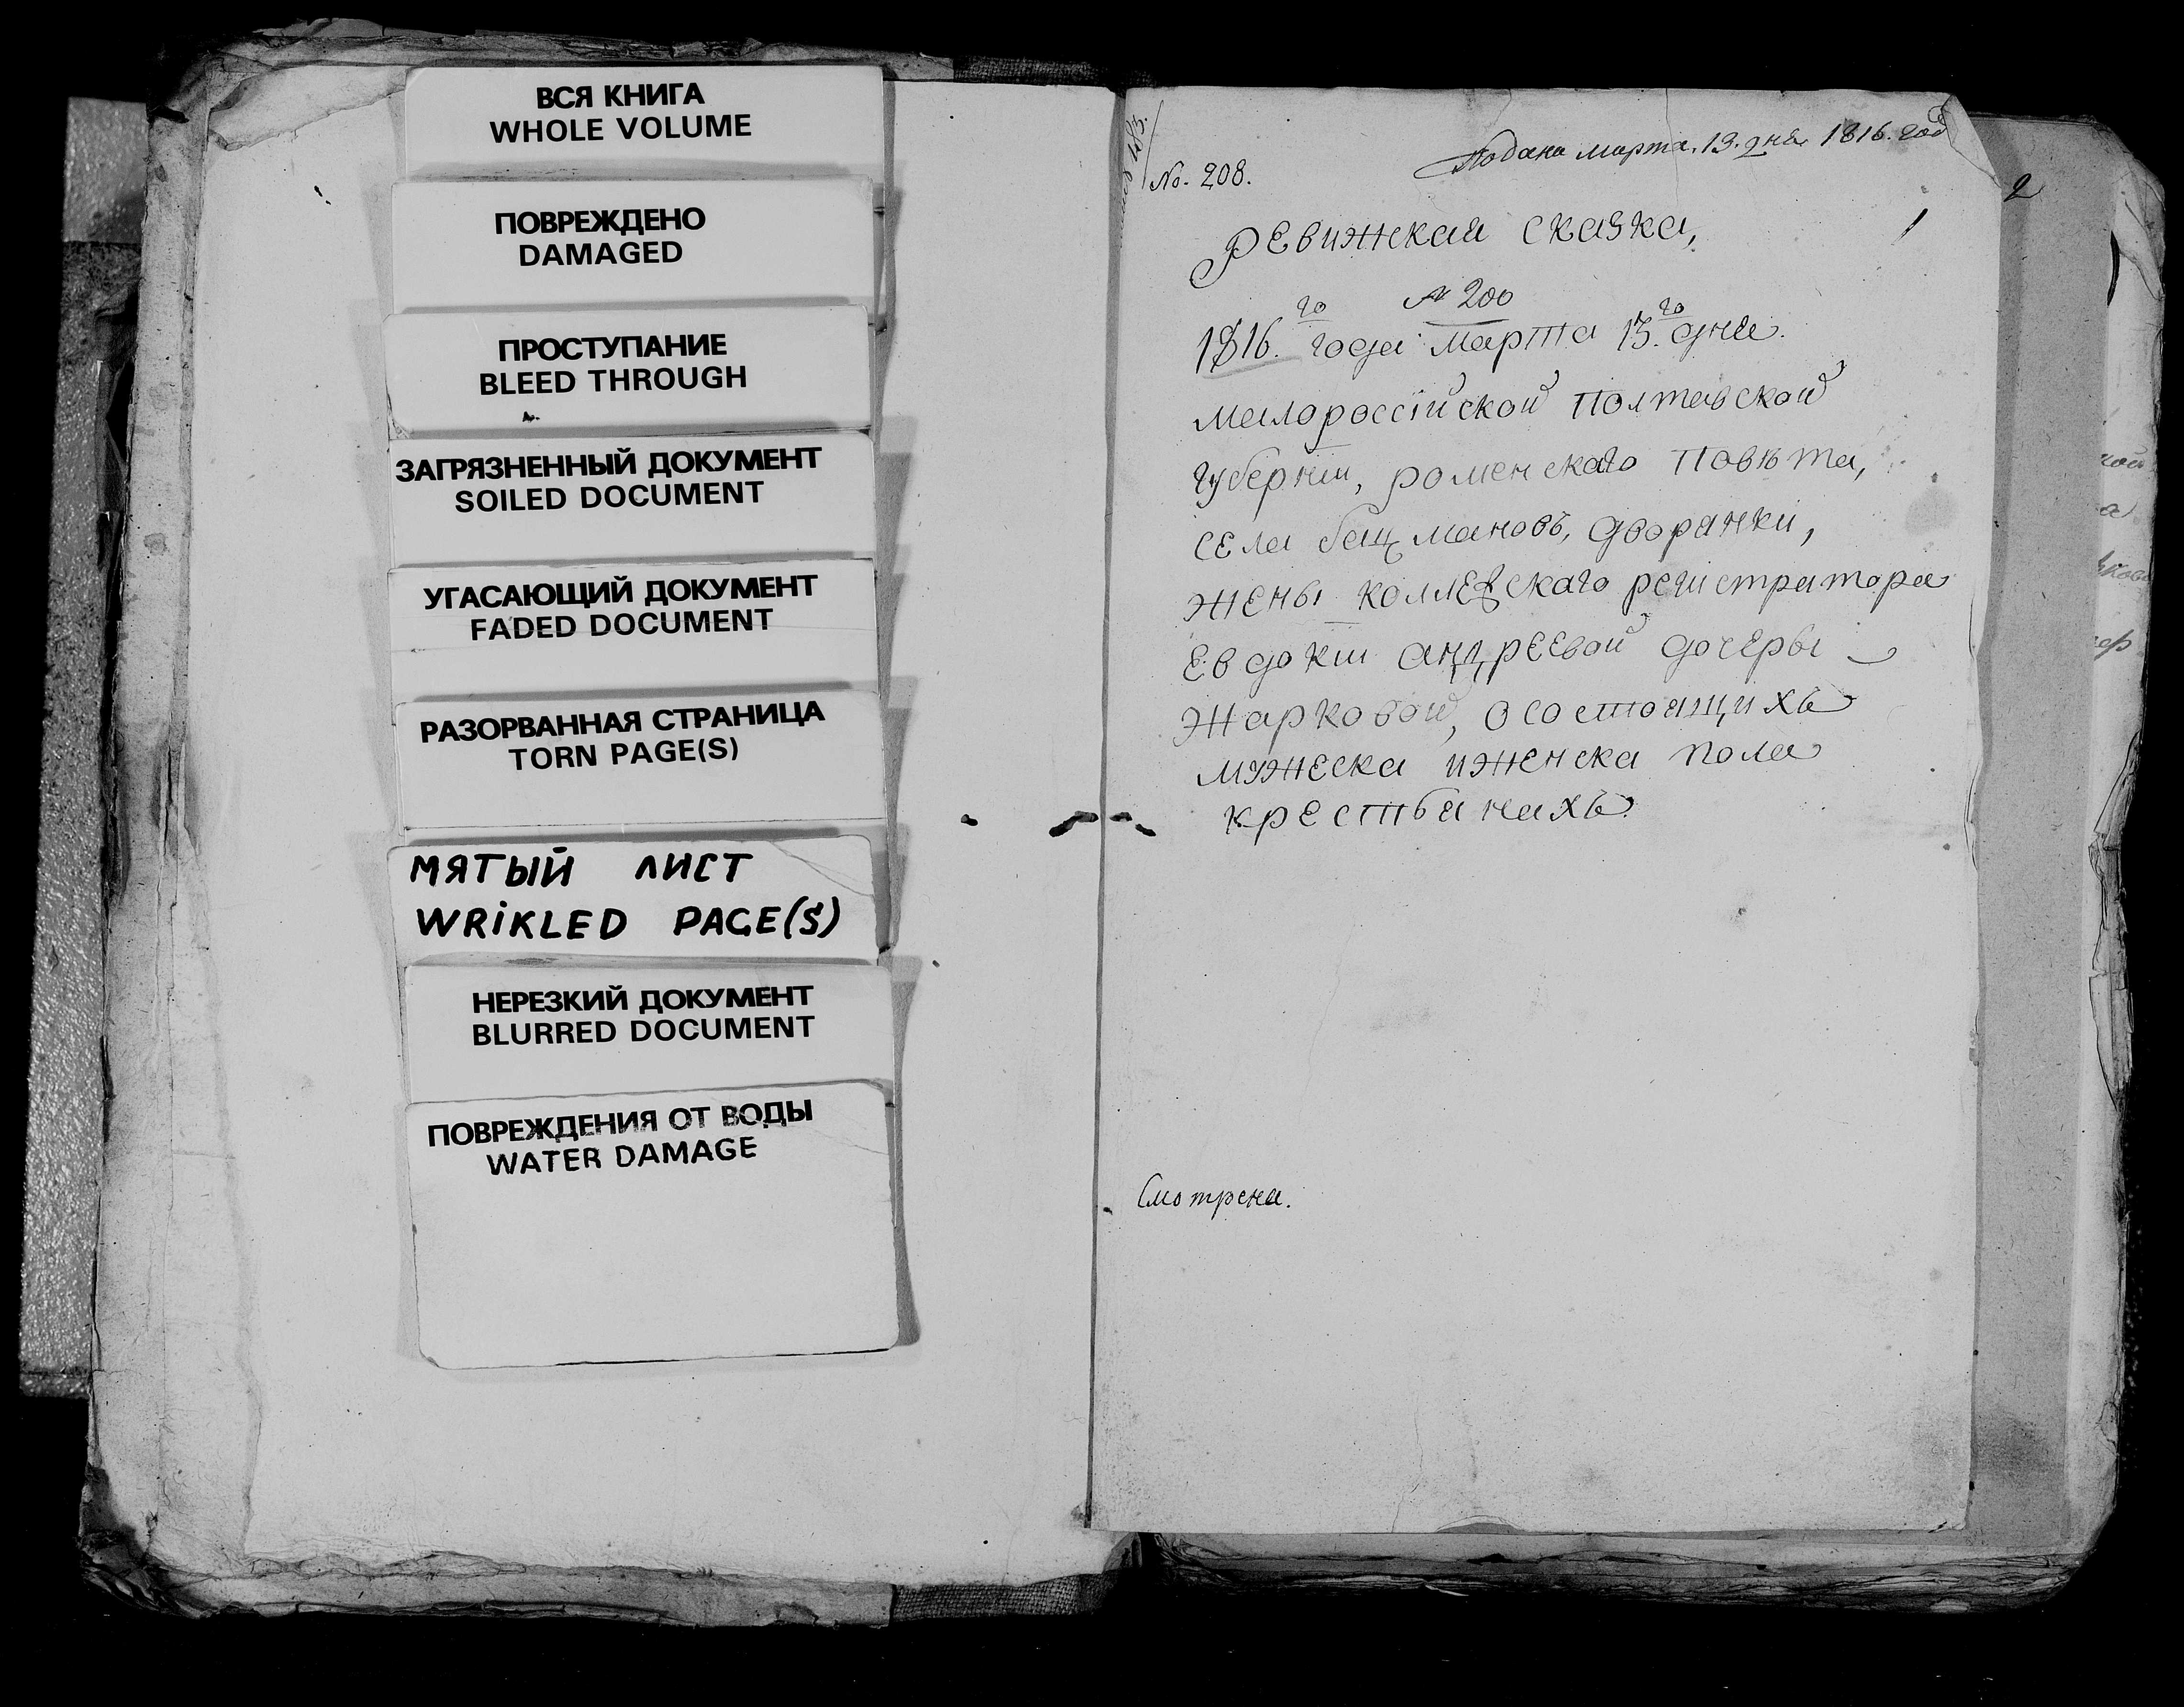 ВСЯ КНИГА
WHOLE VOLUME
ПОВРЕЖДЕНО
DAMAGED
ПРОСТУПАНИЕ
BLEED THROUGH
ЗАГРЯЗНЕННЫЙ ДОКУМЕНТ
SOILED DOCUMENT
УГАСАЮЩИЙ ДОКУМЕНТ
FADED DOCUMENT
РАЗОРВАННАЯ СТРАНИЦА
TORN PAGE(S)
МЯТЫЙ ЛИСТ
WRIKLED PAGE(S)
НЕРЕЗКИЙ ДОКУМЕНТ
BLURRED DOCUMENT
ПОВРЕЖДЕНИЯ ОТ ВОДЫ
WATER DAMAGE
Подана марта. 13. дня 1816. год
No. 208.
1
Ревижская сказка,
№ 200
1816.го года марта 13.го дня.
малороссійской Полтавской
губерніи, роменскаго Повѣта,
села бацмановъ, дворянки,
жены коллежскаго регистратора
Евдокіи андреевой дочеры
жарковой, о состоящихъ
мужеска и женска пола
крестьянахъ.
Смотрена.
2